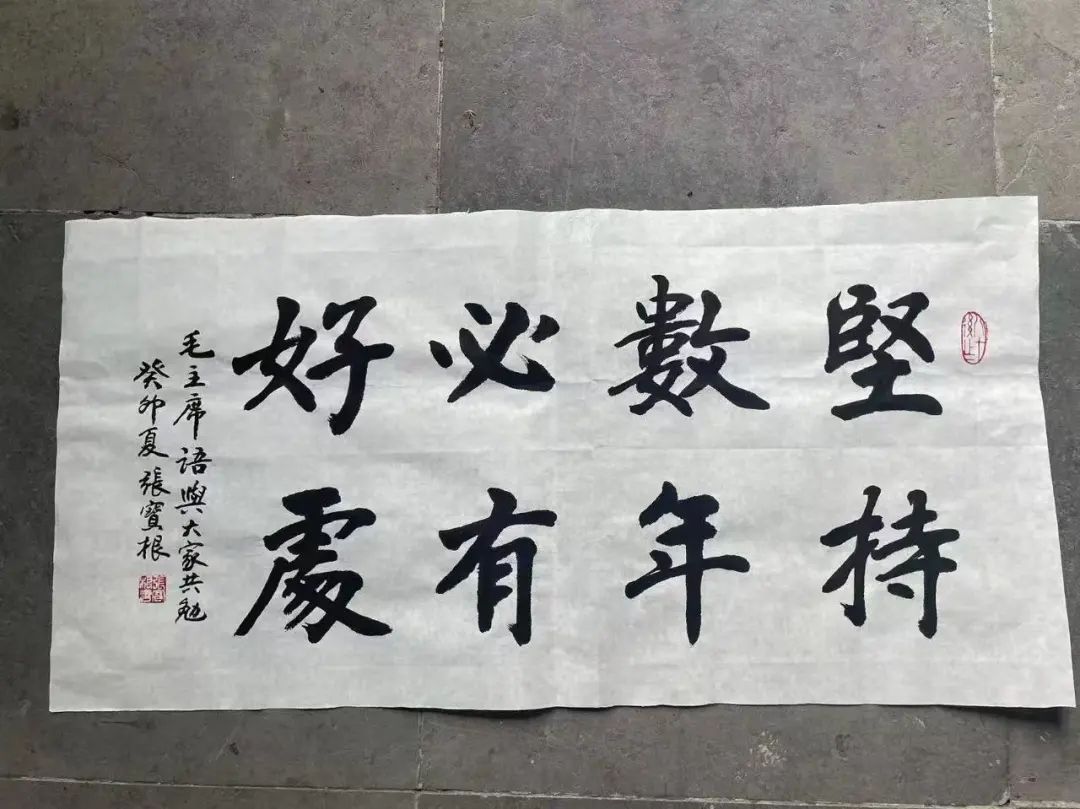 堅持
數年
必有
好處
毛主席語與大家共勉
癸卯夏張寶根